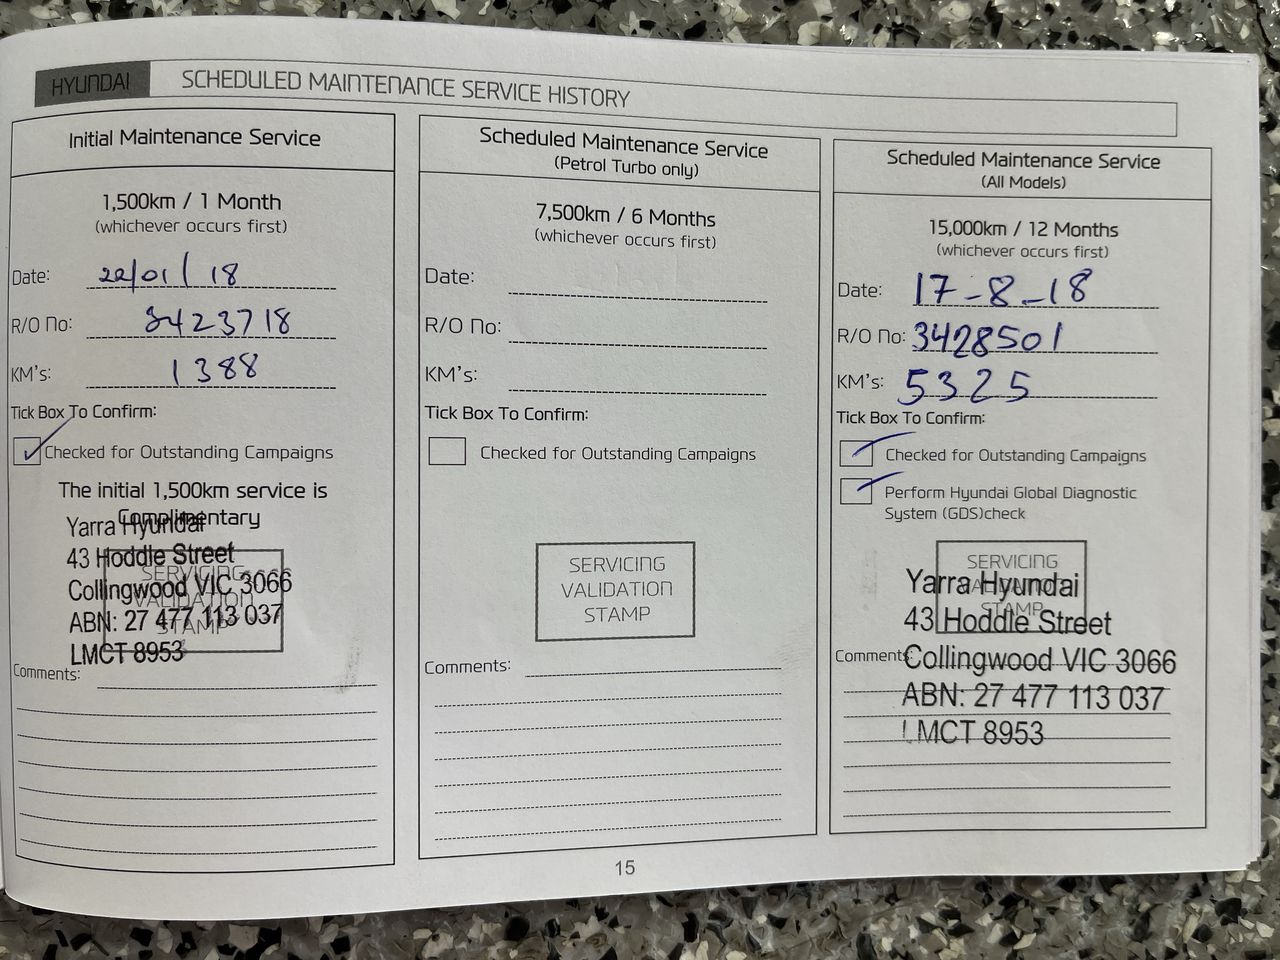 HYUNDAI SCHEDULED MAINTENANCE SERVICE HISTORY
Initial Maintenance Service
1,500km / 1 Month
(whichever occurs first)
Date: 22/01/18
R/O No: 3423718
KM's: 1388
Tick Box To Confirm:
Checked for Outstanding Campaigns
The initial 1,500km service is
Complimentary
Yarra Hyundai
43 Hoddle Street
SERVICING
Collingwood VIC 3066
VALIDATION
ABN: 27 477 113 037
STAMP
LMCT 8953
Comments:
Scheduled Maintenance Service
(Petrol Turbo only)
7,500km / 6 Months
(whichever occurs first)
Date:
R/O No:
KM's:
Tick Box To Confirm:
Checked for Outstanding Campaigns
SERVICING
VALIDATION
STAMP
Comments:
Scheduled Maintenance Service
(All Models)
15,000km / 12 Months
(whichever occurs first)
Date: 17-8-18
R/O No: 3428501
KM's: 5325
Tick Box To Confirm:
Checked for Outstanding Campaigns
Perform Hyundai Global Diagnostic
System (GDS)check
SERVICING
Yarra Hyundai
VALIDATION
STAMP
43 Hoddle Street
Comments:
Collingwood VIC 3066
ABN: 27 477 113 037
LMCT 8953
15